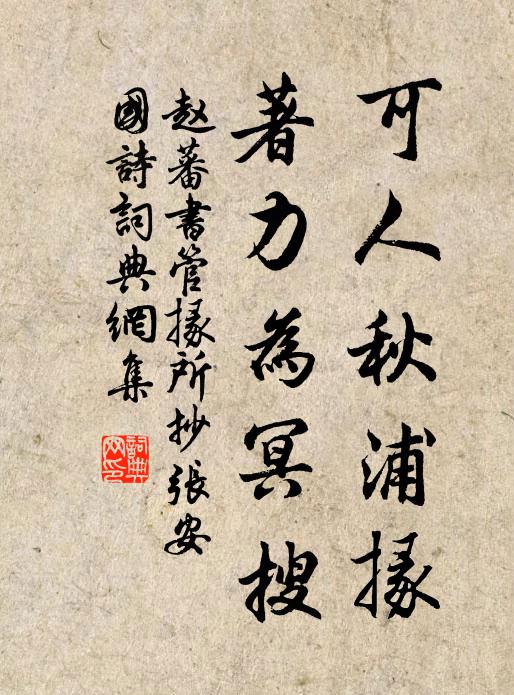 可人秋浦掾
著力為冥搜
赵蕃書管掾所抄張安
國詩詞典網集
詞典網印